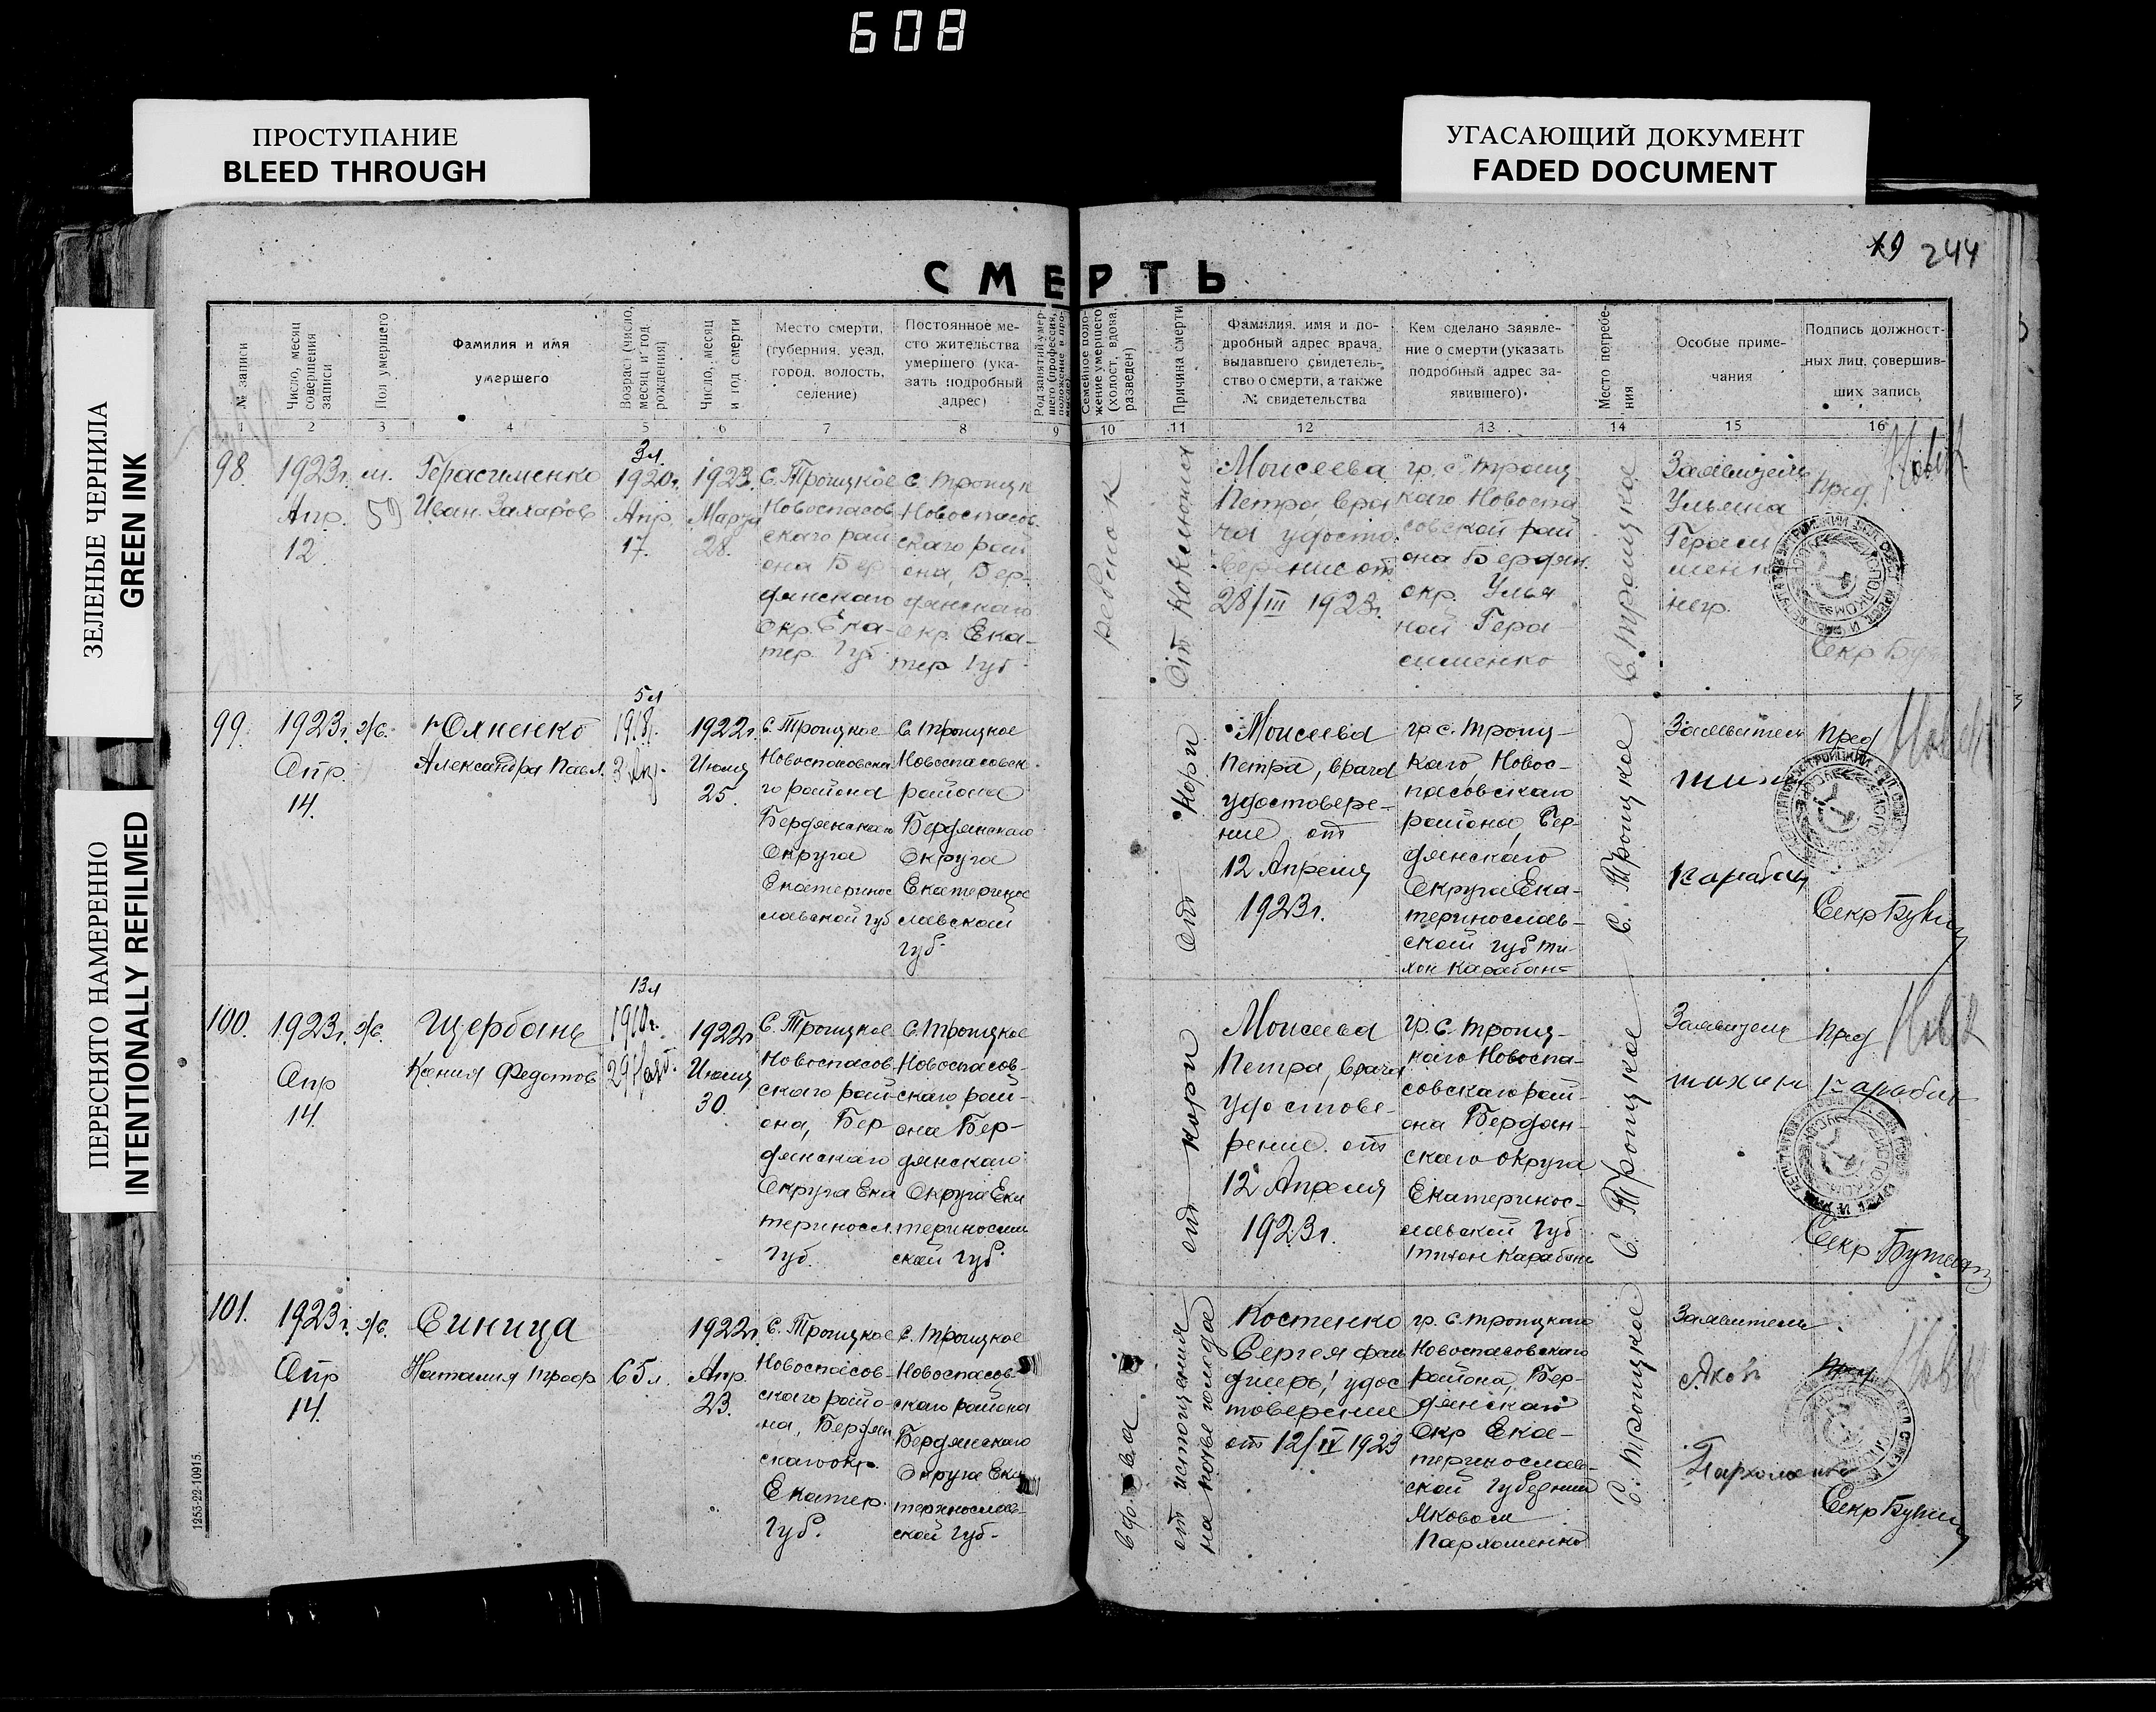 608
ПРОСТУПАНИЕ
BLEED THROUGH
УГАСАЮЩИЙ ДОКУМЕНТ
FADED DOCUMENT
ЗЕЛЕНЫЕ ЧЕРНИЛА
GREEN INK
ПЕРЕСНЯТО НАМЕРЕННО
INTENTIONALLY REFILMED
19 244
СМЕРТЬ
№ записи
Число, месяц
совершения
записи
Пол умершего
Фамилия и имя
умершего
Возраст (число,
месяц и год
рождения)
Число, месяц
и год смерти
Место смерти,
(губерния, уезд,
город, волость,
селение)
Постоянное ме-
сто жительства
умершего (ука-
зать подробный
адрес)
Род занятий умер-
шего (профессия,
положение в про-
Семейное поло-
жение умершего
(холост, вдова,
разведен)
Причина смерти
Фамилия, имя и по-
дробный адрес врача,
выдавшего свидетель-
ство о смерти, а также
№ свидетельства
Кем сделано заявле-
ние о смерти (указать
подробный адрес за-
явившего)
Место погребе-
ния
Особые приме-
чания
Подпись должност-
ных лиц, совершив-
ших запись
1 2 3 4 5 6 7 8 9 10 11 12 13 14 15 16
98.
1923г.
Апр.
12
м.
59
Герасименко
Иван Захаров
3л
1920г.
Апр.
17.
1923.
Марта
28.
С. Троицкое
Новоспасов
скаго рай
она Бер
дянскаго
Окр. Ека-
тер. Губ
С. Троицк
Новоспасов.
скаго рай
она, Бер-
дянскаго
Окр. Ека-
тер Губ
ребенок
От коклюша
Моисеева
Петра, вра
ча удосто.
верение от
28/III 1923г.
гр. с. Троиц
каго Новоспа
совской рай
она Бердян.
окр. Улья
ной Гера
сименко
С. Троицкое
Заявитель
Ульяна
Гераси
менк
негр.
Пред
Секр
99.
1923г.
Апр.
14.
ж.
Юлненко
Александра Павл.
5л
1918г.
1922г.
Июля
25.
С. Троицкое
Новоспасовска
го района
Бердянскаго
Округа
Екатеринос
лавской губ
С. Троицкое
Новоспасовск.
района
Бердянскаго
Округа
Екатеринос
лавской
губ.
от кори
Моисеева
Петра, врача
удостовере-
ние от
12 Апреля
1923г.
гр. с. Троиц-
каго, Новос-
пасовскаго
района, Бер-
дянскаго
Округа Ека-
теринослав-
ской губ Ти-
хон Карабан-
С. Троицкое
Заявитель
Пред
Секр
100.
1923г.
Апр
14.
ж.
Щербань
Ксения Федотов
13л
1910г.
1922г
Июля
30.
С. Троицкое
Новоспасов
скаго рай-
она, Бер
дянскаго
Округа Ека
теринсл.
Губ.
С. Троицкое
Новоспасов-
скаго рай-
она Бер-
дянскаго
Округа Ека
теринослав
ской Губ.
от кори
Моисеева
Петра, врача
удостове-
рение от
12 Апреля
1923г.
гр. с. Троиц-
каго Новоспа-
совскаго рай-
она Бердян-
скаго округа
Екатеринос-
лавской Губ
Тихон Карабань
С. Троицкое
Заявитель
Тихон Карабан
Пред
Секр
101.
1923г.
Апр
14.
ж.
Синица
Наталия Проф
65л.
1922г.
Апр.
23.
С. Троицкое
Новоспасов-
скаго райо-
на, Бердян
скаго окр.
Екатер.
Губ.
С. Троицкое
Новоспасов-
скаго района
Бердянскаго
Округа Ека
теринослав-
ской Губ-
вдова
от истощения
на почве голода
Костенко
Сергея фель
дшера, удос
товерение
от 12/IV 1923
гр. с. Троицкаго
Новоспасовскаго
района, Бер-
дянскаго
Окр Ека-
теринослав-
ской Губернии
Яковом
Пархоменко
С. Троицкое
Заявитель
Яков
Пархоменко
Пред
Секр
1253-22-10915